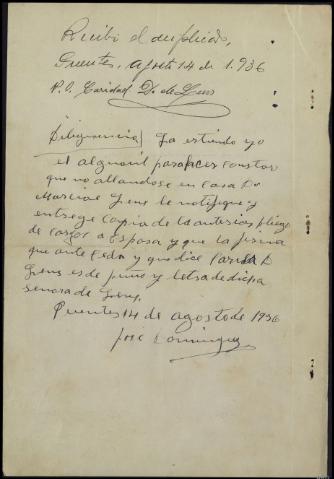 Recibí el duplicado,
Puentes, Agosto 14 de 1.936
P.O. Caridad D. de
Diligencia / La estiendo yo
el alguacil para acer constar
que no allandose en casa Dn
Marcial le notifique y
entrege copia de la anterior pliego
de cargos a esposa y que la firma
que ante cede y que dice Caridad D
es de puño y letra de dicha
señora de
Puentes 14 de agosto de 1936
José Dominguez